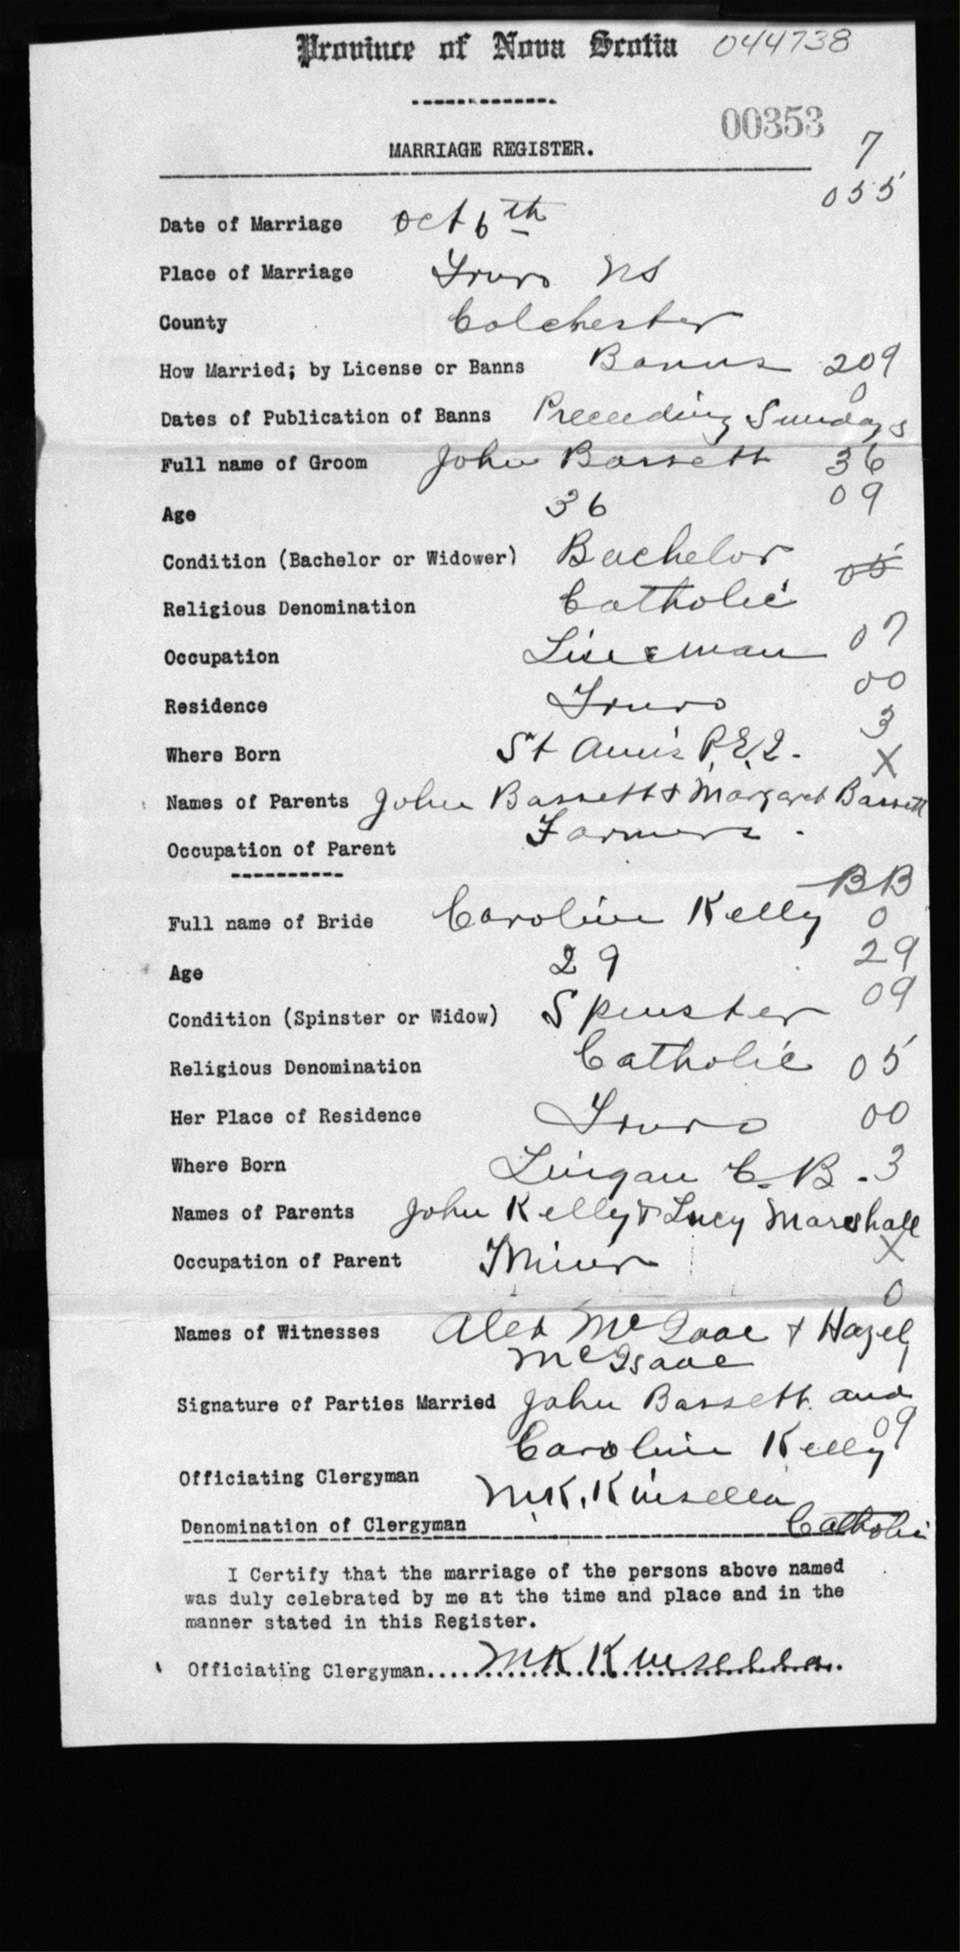 Province of Nova Scotia 044738
00353
MARRIAGE REGISTER. 7
055
Date of Marriage Oct 6th
Place of Marriage Truro NS
County Colchester
How Married; by License or Banns Banns 209
0
Dates of Publication of Banns Preceeding Sundays
Full name of Groom John Bassett 36
Age 36 09
Condition (Bachelor or Widower) Bachelor 05
Religious Denomination Catholic
Occupation Lineman 07
Residence Truro 00
3
Where Born St Ann's P.E.I. X
Names of Parents John Bassett & Margaret Bassett
Occupation of Parent Farmers.
BB
Full name of Bride Caroline Kelly 0
Age 29 29
Condition (Spinster or Widow) Spinster 09
Religious Denomination Catholic 05
Her Place of Residence Truro 00
Where Born Lingan C.B. 3
Names of Parents John Kelly & Lucy Marshall
Occupation of Parent Miner X
0
Names of Witnesses Alex McIsaac & Hazel
McIsaac 1
Signature of Parties Married John Bassett and
Caroline Kelly 09
Officiating Clergyman MK. Kinsella
Denomination of Clergyman Catholic
I Certify that the marriage of the persons above named
was duly celebrated by me at the time and place and in the
manner stated in this Register.
Officiating Clergyman MK Kinsella